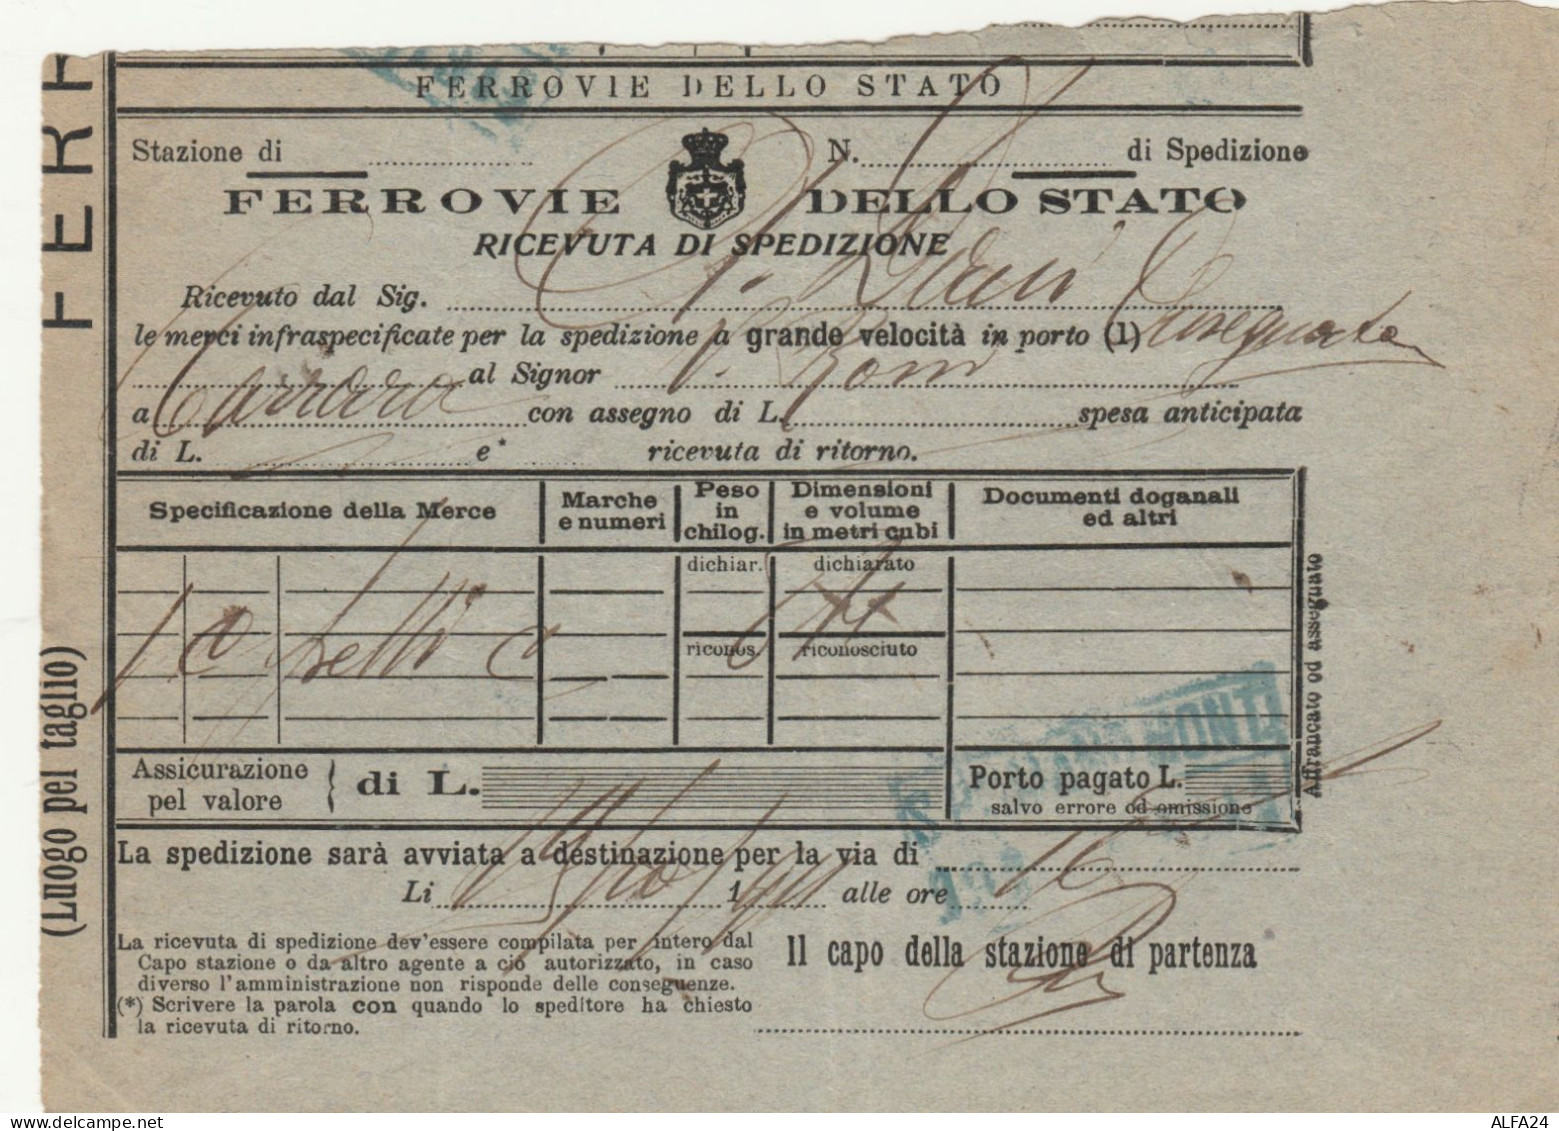 FERROVIE DELLO STATO
Stazione di N. di Spedizione
FERROVIE DELLO STATO
RICEVUTA DI SPEDIZIONE
Ricevuto dal Sig.
le merci infraspecificate per la spedizione a grande velocità in porto (1) Assegnato
al Signor
a Carrara con assegno di L. spesa anticipata
di L. e* ricevuta di ritorno.
Specificazione della Merce
Marche e numeri
Peso in chilog.
Dimensioni e volume in metri cubi
Documenti doganali ed altri
dichiar. dichiarato
1
riconos. riconosciuto
Assicurazione pel valore } di L.
Porto pagato L.
salvo errore od omissione
La spedizione sarà avviata a destinazione per la via di
Li 1 alle ore 16
La ricevuta di spedizione dev'essere compilata per intero dal
Capo stazione o da altro agente a ciò autorizzato, in caso
diverso l'amministrazione non risponde delle conseguenze.
(*) Scrivere la parola con quando lo speditore ha chiesto
la ricevuta di ritorno.
Il capo della stazione di partenza
Affrancato od assegnato
(Luogo pel taglio)
FERR
ALFA24